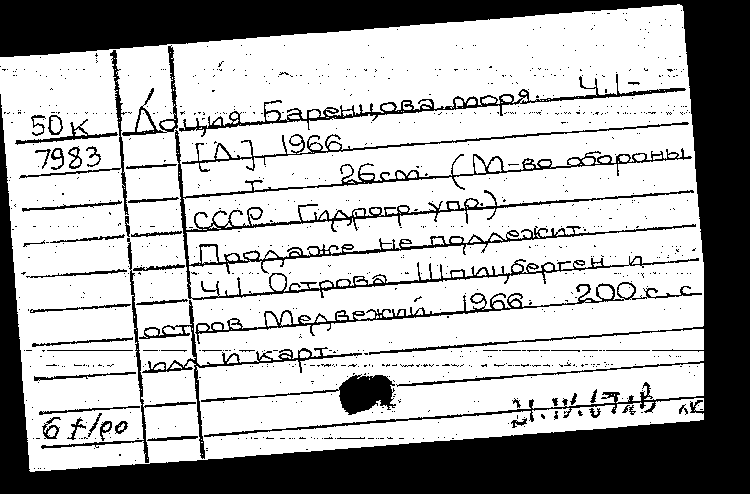 50к Лоция Баренцова моря. Ч.1-
7983 [Л.], 1966.
т. 26см. (М-во обороны
СССР. Гидрогр. упр.).
Продаже не подлежит.
Ч.1. Острова Шпицберген и
остров Медвежий. 1966. 200 с. с
илл. и карт.
21.IV.67